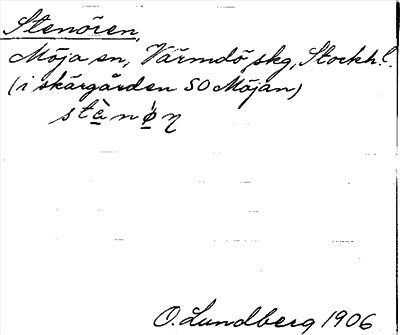 Stenören,
Möja sn, Värmdö skg, Stockh. l.
(i skärgården SO Möjan)
stènǿη
O. Lundberg 1906